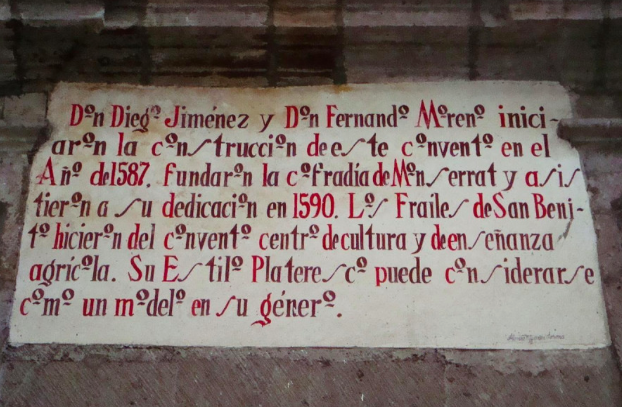 Don Diego Jiménez y Don Fernando Moreno inici-
aron la construcción de este convento en el
Año del 1587. fundaron la cofradía de Monserrat y asis
tieron a su dedicación en 1590. Los Frailes de San Beni-
to hicieron del convento centro de cultura y de enseñanza
agrícola. Su Estilo Plateresco puede considerarse
como un modelo en su género.